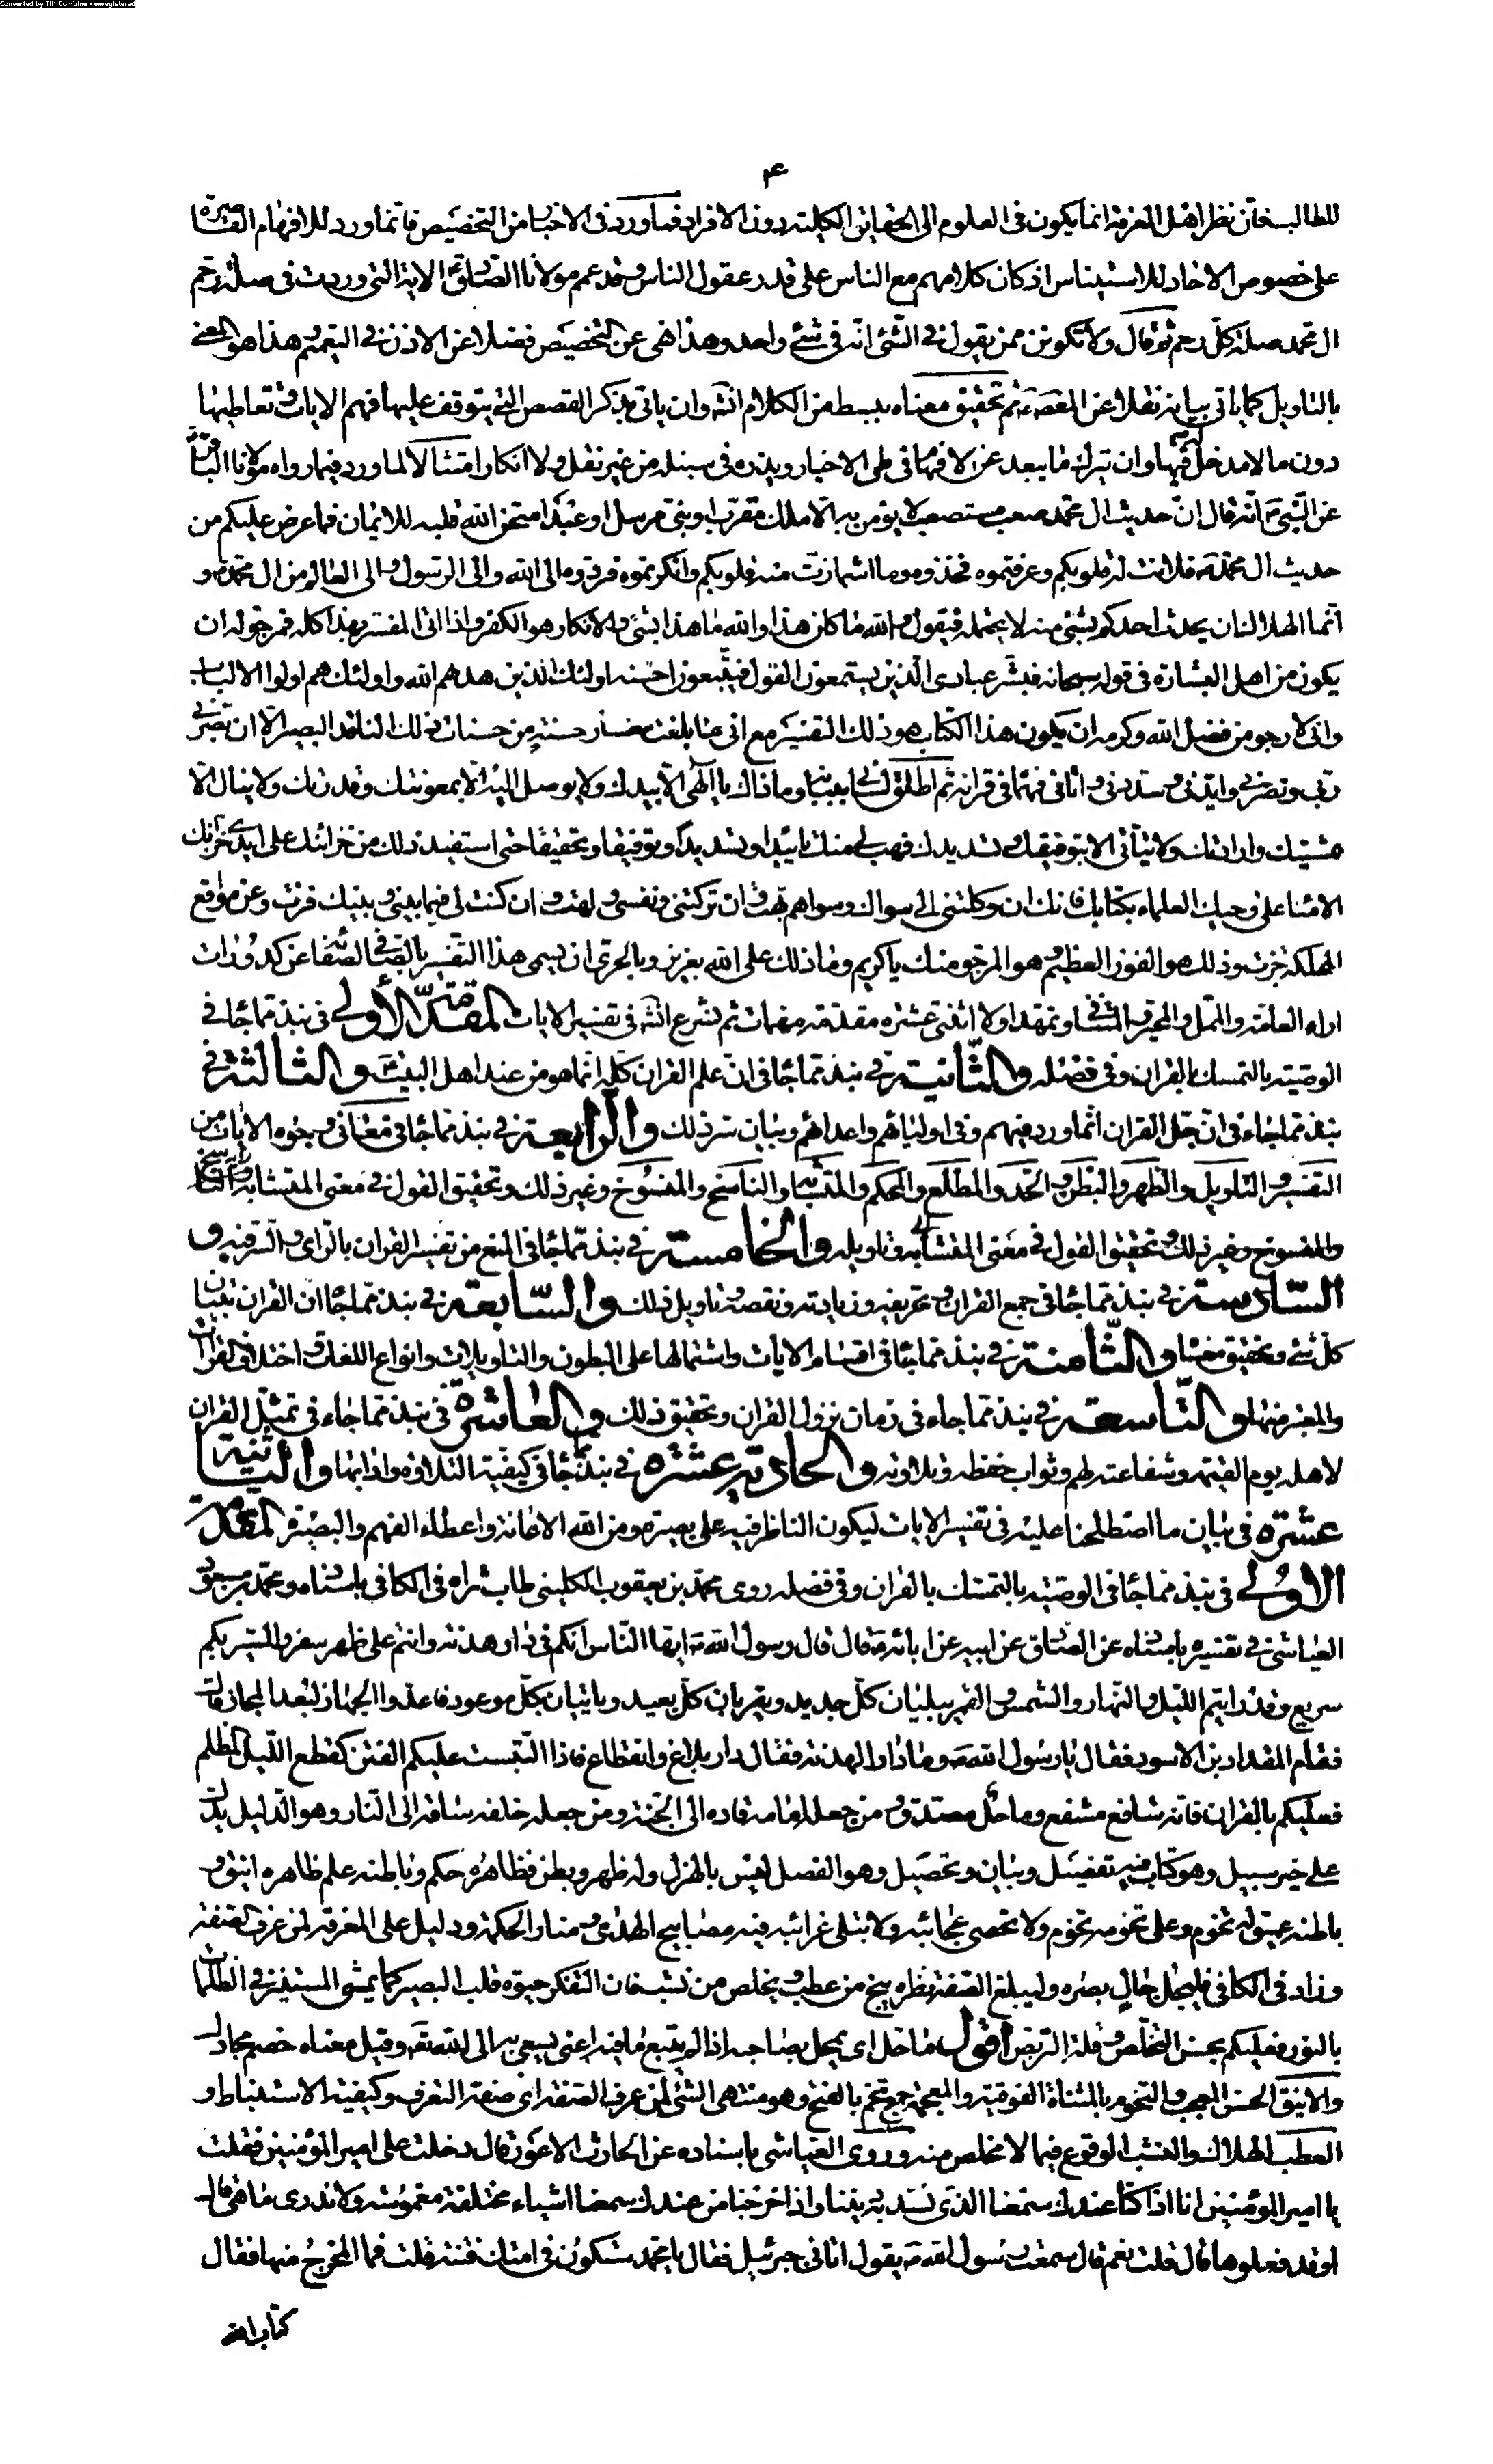 Converted by Tiff Combine - unregistered
۴
للطالب فان نظر اهل المعرفة انما يكون فى العلوم الى الحقايق الكلية دون الافراد فما ورد فى الاخبار من التخصيص فانما ورد للافهام القاصرة
على خصوص الاحاد للاستيناس اذ كان كلامهم مع الناس على قدر عقول الناس وقد عمم مولانا الصادق الاية التى وردت فى صلة رحم
ال محمد صلة كل رحم ثم قال ولا تكونن ممن يقول فى الشئ انه فى شئ واحد وهذا نهى عن التخصيص فضلا عن الاذن فى التعميم هذا هو المعنى
بالتاويل كما ياتى بيانه نقلا عن المعصوم ثم تحقيق معناه ببسط من الكلام انشه وان ياتى بذكر القصص التى يتوقف عليها فهم الايات وتعاطيها
دون ما لا مدخل له فيها وان يترك ما يبعد عن الافهام فى طى الاخبار ويذره فى سنبله من غير نقل ولا انكار امتثالا لما ورد فيما رواه مولانا الباقر
عن النبى ص انه قال ان حديث ال محمد صعب مستصعب لا يؤمن به الا ملك مقرب او نبى مرسل او عبد امتحن الله قلبه للايمان فما عرض عليكم من
حديث ال محمد فلانت له قلوبكم وعرفتموه فخذوه وما اشمازت منه قلوبكم وانكرتموه فردوه الى الله والى الرسول والى العالم من ال محمد و
انما الهلاك ان يحدث احدكم بشئ منه لا يحتمله فيقول والله ما كان هذا والله ما هذا بشئ والانكار هو الكفر واذا اتى المفسر بهذا كله فمرجو له ان
يكون من اهل البشارة فى قوله سبحانه فبشر عبادى الذين يستمعون القول فيتبعون احسنه اولئك الذين هدهم الله واولئك هم اولوا الالباب
وانى لارجو من فضل الله وكرمه ان يكون هذا الكتاب هو ذلك التفسير مع انى ما بلغت معشار حسنة من حسنات ذلك الناقد البصير الا ان
ربى ونصرنى وايدنى وسددنى واتانى فهما فى قرانه ثم اطلق لسانى وما ذاك يا الهى الا بيدك ولا يوصل اليه الا بمعونتك وقدرتك ولا ينال الا
بمشيتك وارادتك ولا يتأتى الا بتوفيقك وتسديدك فهب لى منك تاييدا وتسديدا وتوفيقا وتحقيقا حتى استفيد ذلك من خزائنك على ايدى خزانك
الامنا على وحيك العلماء بكتابك فانك ان وكلتنى الى سواك وسواهم تهت وان تركتنى ونفسى ولهت وان كنت لى فيما بينى وبينك فزت وعن مواقع
الهلكة نجوت وذلك هو الفوز العظيم وهو المرجو منك يا كريم وما ذلك على الله بعزيز وبالحرى ان يسمى هذا التفسير بالصافى لصفائه عن كدورات
اراء العامة والممل والمحير والمتنافى ونمهد اولا اثنتى عشرة مقدمة مهمات ثم نشرع انشه فى تفسير الايات المقدمة الأولى فى نبذ مما جاء فى
الوصية بالتمسك بالقران وفى فضله والثانية فى نبذ مما جاء فى ان علم القران كله انما هو من عند اهل البيت ع والثالثة فى
نبذ مما جاء فى ان جل القران انما ورد فيهم وفى اوليائهم واعدائهم وبيان سر ذلك والرابعة فى نبذ مما جاء فى معانى وجوه الايات من
التفسير والتاويل والظهر والبطن والحد والمطلع والمحكم والمتشابه والناسخ والمنسوخ وغير ذلك وتحقيق القول فى معنى المتشابه والناسخ
والمنسوخ وغير ذلك وتحقيق القول فى معنى المتشابه وتاويله والخامسة فى نبذ مما جاء فى المنع من تفسير القران بالراى والسر فيه و
السادسة فى نبذ مما جاء فى جمع القران وتحريفه وزيادته ونقصه وتاويل ذلك والسابعة فى نبذ مما جاء ان القران تبيان
كل شئ وتحقيق معناه والثامنة فى نبذ مما جاء فى اقسام الايات واشتمالها على البطون والتاويلات وانواع اللغات واختلاف القرائات
والمعتبر منها والتاسعة فى نبذ مما جاء فى زمان نزول القران وتحقيق ذلك والعاشرة فى نبذ مما جاء فى تمثل القران
لاهله يوم القيمة وشفاعته لهم وثواب حفظه وتلاوته والحادية عشرة فى نبذ مما جاء فى كيفية التلاوة وادابها والثانية
عشرة فى بيان ما اصطلحنا عليه فى تفسير الايات ليكون الناظر فيه على بصيرة ومن الله الاعانة واعطاء الفهم والبصيرة المقدمة
الاولى فى نبذ مما جاء فى الوصية بالتمسك بالقران وفى فضله روى محمد بن يعقوب الكلينى طاب ثراه فى الكافى باسناده ومحمد بن مسعود
العياشى فى تفسيره باسناده عن الصادق عن ابيه عن ابائه ع قال قال رسول الله ص ايها الناس انكم فى دار هدنة وانتم على ظهر سفر والسير بكم
سريع وقد رايتم الليل والنهار والشمس والقمر يبليان كل جديد ويقربان كل بعيد وياتيان بكل موعود فاعدوا الجهاز لبعد المجاز قال
فقام المقداد بن الاسود فقال يا رسول الله ص وما دار الهدنة فقال دار بلاغ وانقطاع فاذا التبست عليكم الفتن كقطع الليل المظلم
فعليكم بالقران فانه شافع مشفع وماحل مصدق ومن جعله امامه قاده الى الجنة ومن جعله خلفه ساقه الى النار وهو الدليل يدل
على خير سبيل وهو كتاب فيه تفصيل وبيان وتحصيل وهو الفصل ليس بالهزل وله ظهر وبطن فظاهره حكم وباطنه علم ظاهره انيق و
باطنه عميق له تخوم وعلى تخومه تخوم ولا تحصى عجائبه ولا تبلى غرائبه فيه مصابيح الهدى ومنار الحكمة ودليل على المعرفة لمن عرف الصفة
وزاد فى الكافى فليجل جال بصره وليبلغ الصفة نظره ينج من عطب ويخلص من نشب فان التفكر حيوة قلب البصير كما يمشى المستنير فى الظلمات
بالنور فعليكم بحسن التخلص وقلة التربص اقول ماحل اى يمحل بصاحبه اذا لم يتبع ما فيه اعنى يسعى به الى الله تع وقيل معناه خصم مجادل
والانيق الحسن المعجب والتخوم بالمثناة الفوقية والمعجمة جمع تخم بالفتح وهو منتهى الشئ لمن عرف الصفة اى صفة التعرف وكيفية الاستنباط و
العطب الهلاك والنشب الوقوع فيما لا مخلص منه وروى العياشى باسناده عن الحارث الاعور قال دخلت على امير المؤمنين فقلت
يا امير المؤمنين انا اذا كنا عندك سمعنا الذى نسد به ديننا واذا خرجنا من عندك سمعنا اشياء مختلفة مغموسة ولا ندرى ما هى قال
او قد فعلوها قال قلت نعم قال سمعت رسول الله ص يقول اتانى جبرئيل فقال يا محمد ستكون فى امتك فتنة قلت فما المخرج منها فقال
كتاب الله